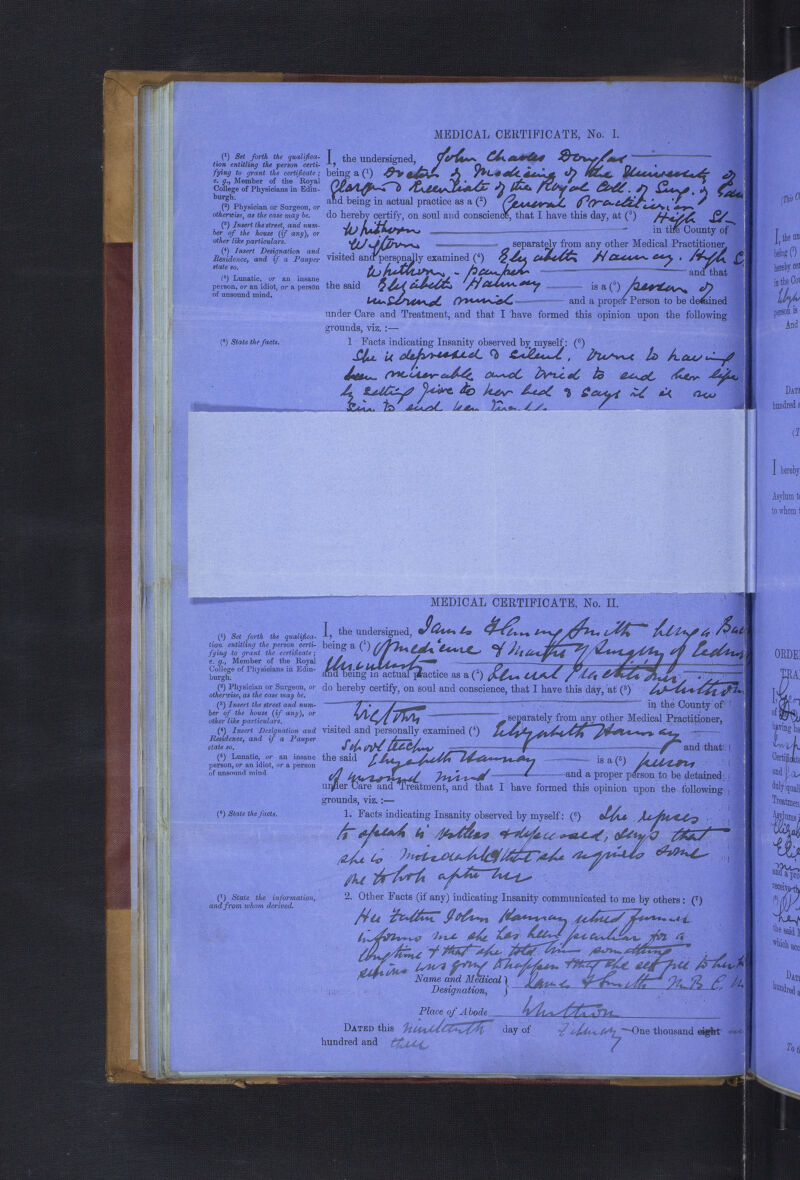 MEDICAL CERTIFICATE, No. I.
(1) Set forth the qualifica-
tion entitling the person certi-
fying to grant the certificate;
e. g., Member of the Royal
College of Physicians in Edin-
burgh.
(2) Physician or Surgeon, or
otherwise, as the case may be.
(3) Insert the street, and num-
ber of the house (if any), or
other like particulars.
(4) Insert Designation and
Residence, and if a Pauper
state so.
(5) Lunatic, or an insane
person, or an idiot, or a person
of unsound mind.
I, the undersigned, John Charles Douglas
being a (1) Doctor of Medicine of the University of
Glasgow & Licentiate of the Royal Coll. of Surg. of Edin
and being in actual practice as a (2) General Practitioner
do hereby certify, on soul and conscience, that I have this day, at (3) High St
Whithorn in the County of
Wigtown separately from any other Medical Practitioner,
visited and personally examined (4) Elizabeth Hannay. High S
Whithorn - pauper and that
the said Elizabeth Hannay is a (5) person of
unsound mind and a proper Person to be detained
under Care and Treatment, and that I have formed this opinion upon the following
grounds, viz. :—
(6) State the facts.
1 Facts indicating Insanity observed by myself: (6)
She is depressed & silent. Owns to having
been miserable and tried to end her life
by setting fire to her bed & says it is no
sin to end her
MEDICAL CERTIFICATE, No. II.
(1) Set forth the qualifica-
tion entitling the person certi-
fying to grant the certificate;
e. g., Member of the Royal
College of Physicians in Edin-
burgh.
(2) Physician or Surgeon, or
otherwise, as the case may be.
(3) Insert the street and num-
ber of the house (if any), or
other like particulars.
(4) Insert Designation and
Residence, and if a Pauper
state so.
(5) Lunatic, or an insane
person, or an idiot, or a person
of unsound mind
I, the undersigned, James Fleming Smith being a Bac
being a (1) of medicine & Master of Surgery of Edinb
University
and being in actual practice as a (2) General Practitioner
do hereby certify, on soul and conscience, that I have this day, at (3) Whithorn
in the County of
Wigtown separately from any other Medical Practitioner,
visited and personally examined (4) Elizabeth Hannay
School teacher and that
the said Elizabeth Hannay is a (5) person
of unsound mind and a proper person to be detained
under Care and Treatment, and that I have formed this opinion upon the following
grounds, viz. :—
(6) State the facts.
1. Facts indicating Insanity observed by myself: (6) She refuses
to speak is restless & depressed, says that
she is miserable & that she requires some
one to look after her
(7) State the information,
and from whom derived.
2. Other Facts (if any) indicating Insanity communicated to me by others: (7)
Her father John Hannay retired farmer
informs me she has been peculiar for a
long time & that she told him something
serious was going to happen & that she set fire to her
Name and Medical Designation, James F Smith M.B. C. M
Place of Abode Whithorn
DATED this nineteenth day of February One thousand eight
hundred and three